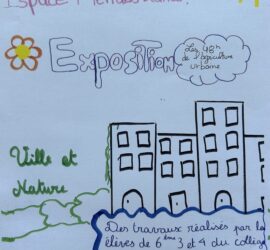 Espace
Exposition
Les 48h
de l'agriculture
urbaine
Ville et
Nature
Des travaux réalisés par le
élèves de 6ème 3 et 4 du collèg